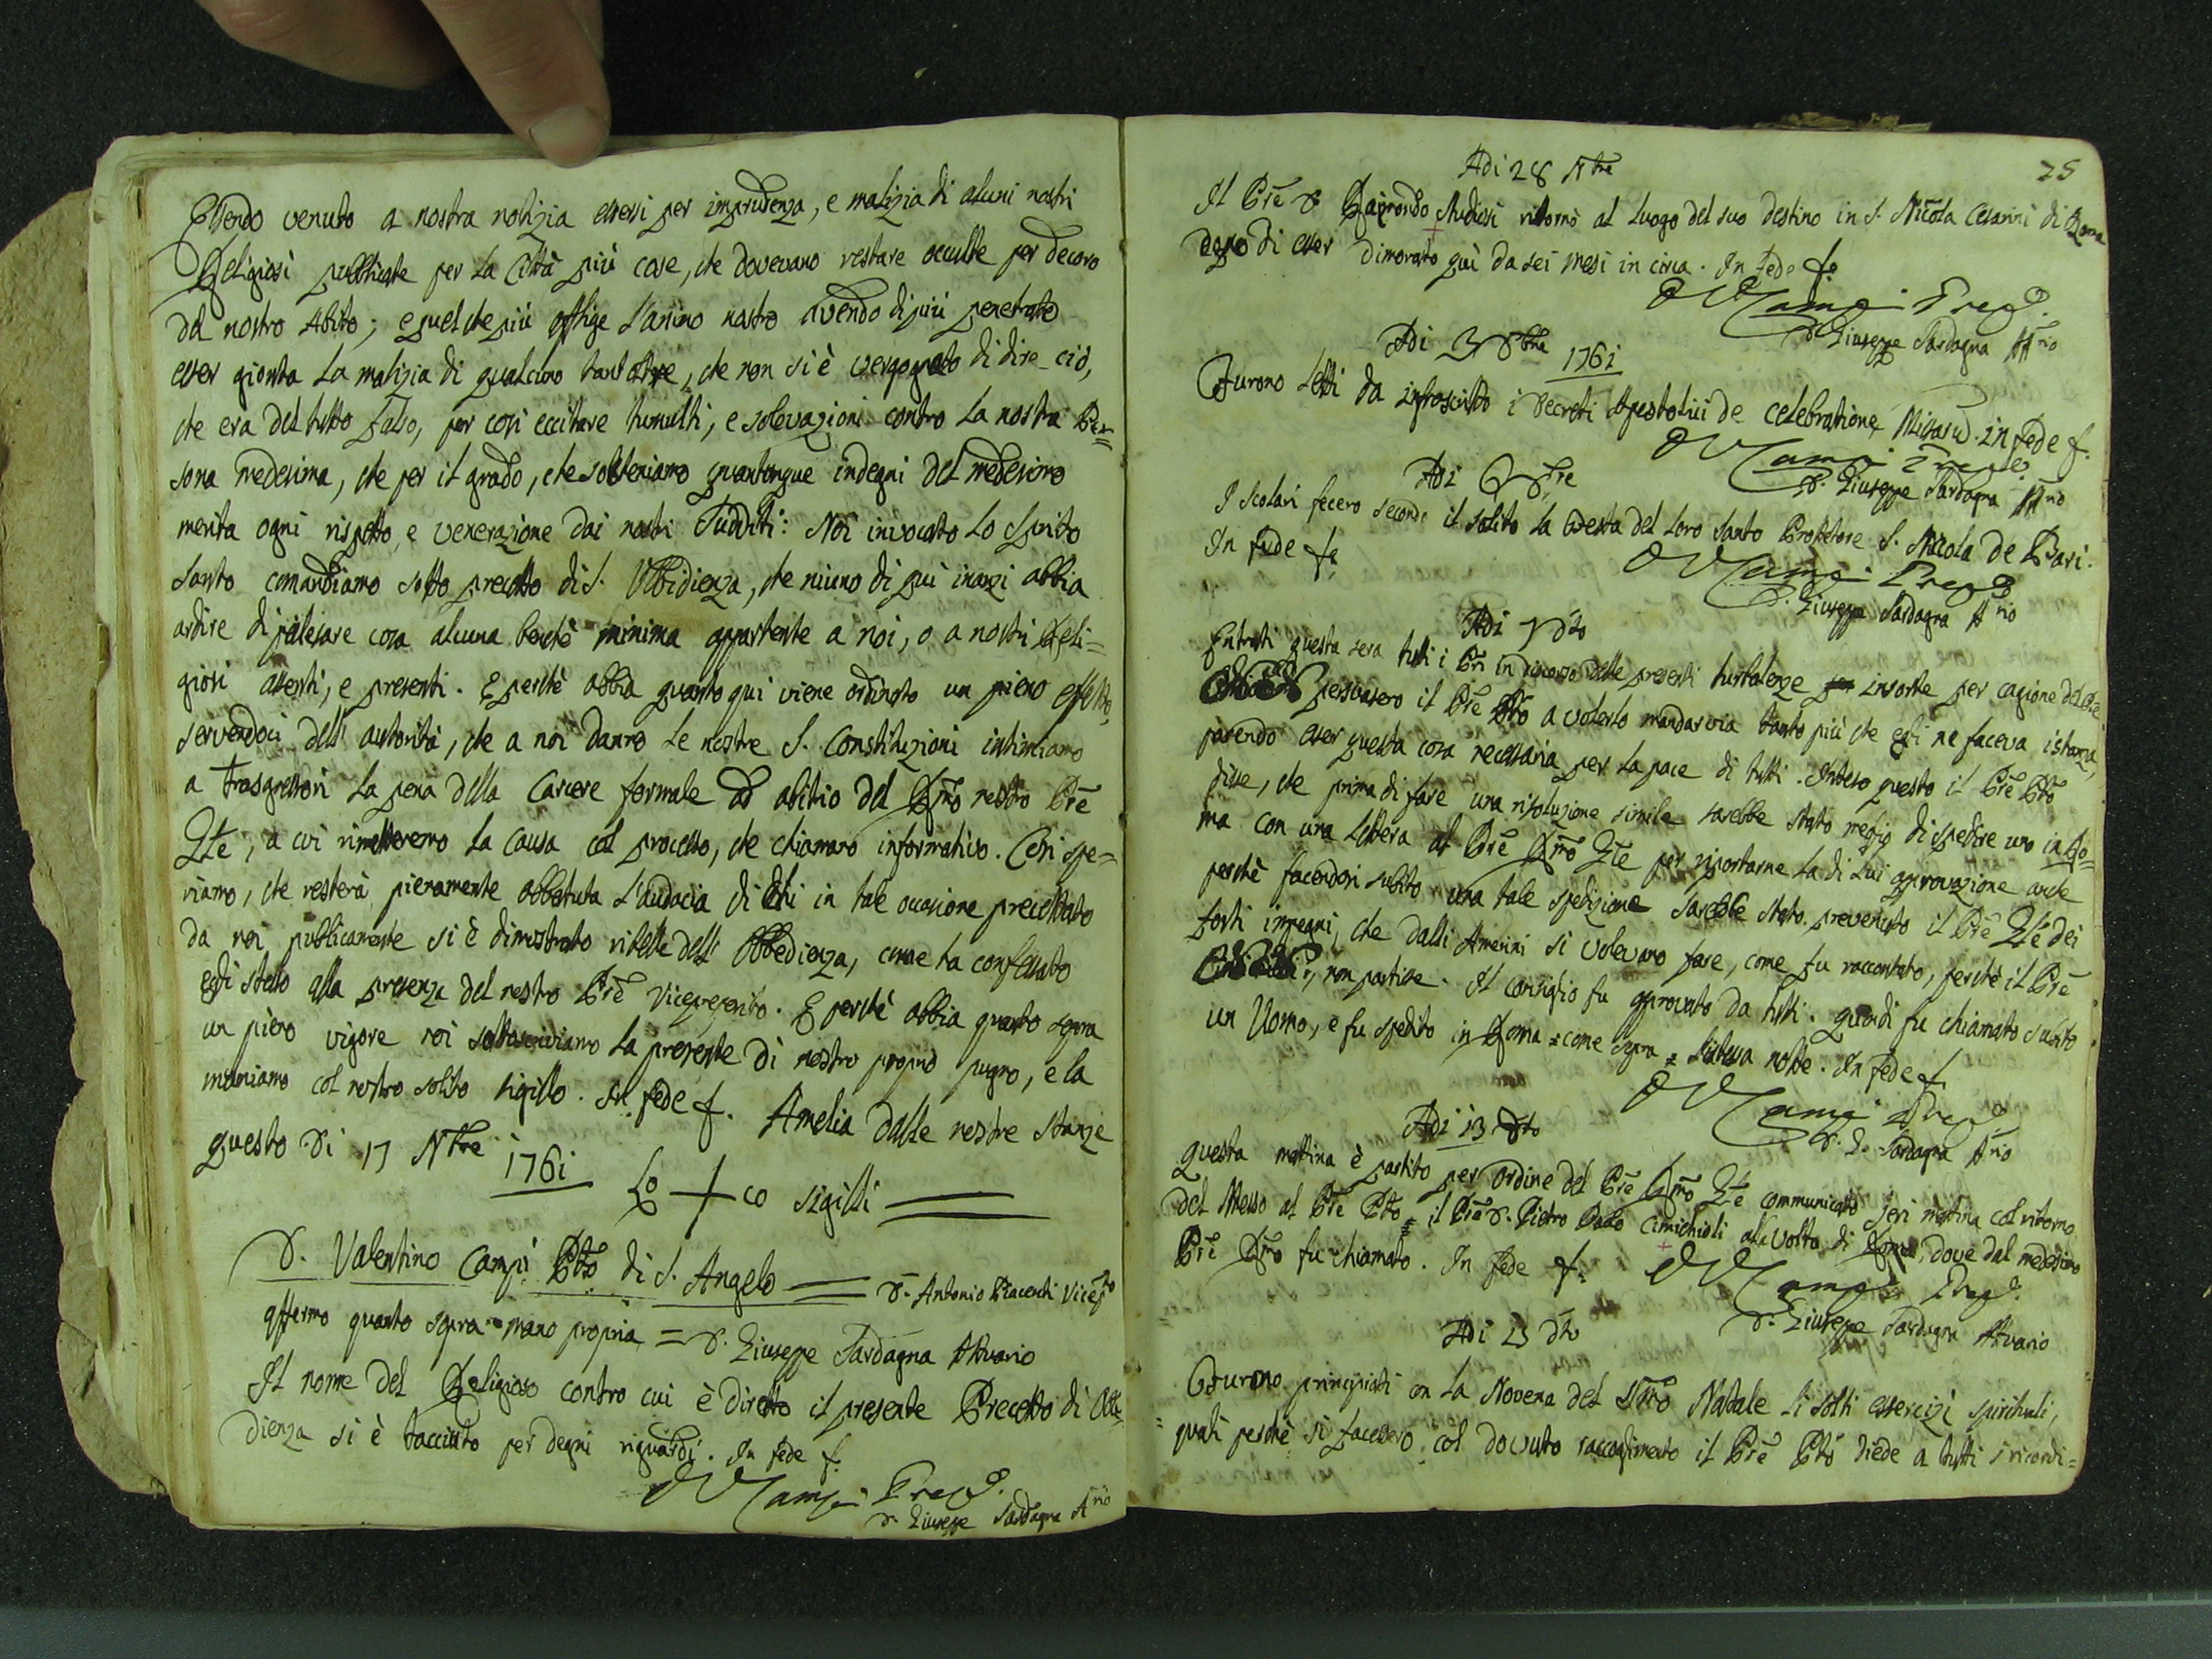 Essendo venuto a nostra notizia essersi per imprudenza, e malizia di alcuni nostri
Religiosi pubblicate per la Città più cose, che dovevano restare occulte per decoro
del nostro Abito; e quel che più afflige l'animo nostro avendo di più penetrato
esser gionta la malizia di qualcuno tant'oltre, che non si è vergognato di dire ciò,
che era del tutto falso, per così eccitare tumulti, e solevazioni contro la nostra Per=
sona medesima, che per il grado, che sosteniamo quantunque indegni del medesimo
merita ogni rispetto, e venerazione dai nostri Sudditi: Noi invocato lo Spirito
Santo comandiamo sotto precetto di S. Ubbidienza, che niuno di qui inanzi abbia
ardire di palesare cosa alcuna benchè minima appartente a noi, o a nostri Reli=
giosi assenti, e presenti. E perchè abbia quanto qui viene ordinato un pieno effetto,
servendoci dell'autorità, che a noi danno le nostre S. Constituzioni intimiamo
a trasgressori la pena della Carcere formale ad abitio del Rmo nostro Pre
Gle, a cui rimetteremo la causa col processo, che chiamano informativo. Così spe=
riamo, che resterà pienamente abbatuta l'audacia di chi in tale occasione precettato
da noi publicamente si è dimostrato ribelle dell'Obbedienza, come ha confessato
egli stesso alla presenza del nostro Pre Vicepreposito. E perchè abbia quanto sopra
un pieno vigore noi sottoscriviamo la presente di nostro proprio pugno, e la
muniamo col nostro solito sigillo. In fede f. Amelia dalle nostre stanze
questo dì 17 Nbre 1761
Lo + co sigilli
D. Valentino Campi Pto di S. Angelo = D. Antonio Piacenti Vicepto
affermo quanto sopra mano propria = D. Giuseppe Sardagna Attuario
Il nome del Religioso contro cui è diretto il presente Precetto di Obbe=
dienza si è tacciuto per degni riguardi. In fede f.
D V Campi Prepo.
D. Giuseppe Sardagna Atrio
25
Adi 28 Nbre
Il Pre D. Raimondo Studiosi ritornò al luogo del suo destino in S. Nicola Cesarini di Roma
dopo di esser dimorato quì da sei mesi in circa. In fede f.
D V Campi Prepo.
D. Giuseppe Sardagna Attrio
Adi 3 Xbre 1761
Furono letti da infrascritto i Decreti Apostolici de celebratione Missarum. in fede f.
D V Campi Prepo
D. Giuseppe Sardagna Attrio
Adi 6 Xbre
I Scolari fecero secondo il solito la Festa del loro Santo Protettore S. Nicola de Bari.
In fede f.
D V Campi Prepo
D. Giuseppe Sardagna Atrio
Adi 9 dto
Entrati questa sera tutti i Pri in discorso delle presenti turbolenze insorte per cagione del Pre
persuasero il Pre Pto a volerlo mandar via tanto più che egli ne faceva istanza,
parendo esser questa cosa necessaria per la pace di tutti. Inteso questo il Pre Pto
disse, che prima di fare una risoluzione simile sarebbe stato meglio di spedire uno in Ro=
ma con una lettera al Pre Rmo Gle per riportarne la di lui approvazione anche
perchè facendosi subito una tale spedizione sarebbe stato prevenuto il Pre Gle dei
forti impegni, che dalli Amerini si volevano fare, come fu raccontato, perchè il Pre
non partisse. Il consiglio fu approvato da tutti. quindi fu chiamato subito
un Uomo, e fu spedito in Roma = come sopra = l'istessa notte. In fede f.
D V Campi Prepo.
D. G. Sardagna Atrio
Adi 13 dto
Questa mattina è partito per ordine del Pre Rmo Gle communicato jeri mattina col ritorno
del Messo al Pre Pto = il Pre D. Pietro Paolo Cimichioli alla volta di Roma, dove dal medesimo
Pre Rmo fu chiamato. In fede f. D V Campi Prepo.
D. Giuseppe Sardagna Attuario
Adi 23 dto
Furono principiati con la Novena del SSmo Natale li soliti essercizi spirituali,
quali perchè si facessero col dovuto raccoglimento il Pre Pto diede a tutti i ricordi=